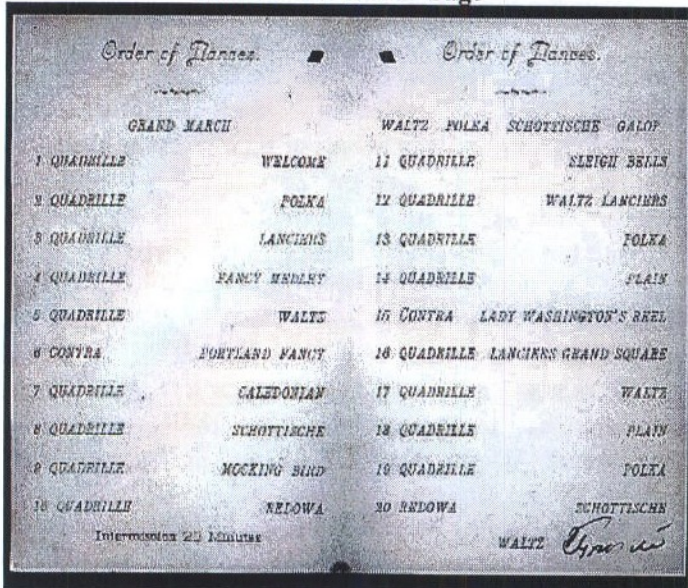 Order of Dances.
GRAND MARCH
1 QUADRILLE WELCOME
2 QUADRILLE POLKA
3 QUADRILLE LANCIERS
4 QUADRILLE FANCY MEDLEY
5 QUADRILLE WALTZ
6 CONTRA PORTLAND FANCY
7 QUADRILLE CALEDONIAN
8 QUADRILLE SCHOTTISCHE
9 QUADRILLE MOCKING BIRD
10 QUADRILLE REDOWA
Intermission 20 Minutes
Order of Dances.
WALTZ POLKA SCHOTTISCHE GALOP
11 QUADRILLE SLEIGH BELLS
12 QUADRILLE WALTZ LANCIERS
13 QUADRILLE POLKA
14 QUADRILLE PLAIN
15 CONTRA LADY WASHINGTON'S REEL
16 QUADRILLE LANCIERS GRAND SQUARE
17 QUADRILLE WALTZ
18 QUADRILLE PLAIN
19 QUADRILLE POLKA
20 REDOWA SCHOTTISCHE
WALTZ